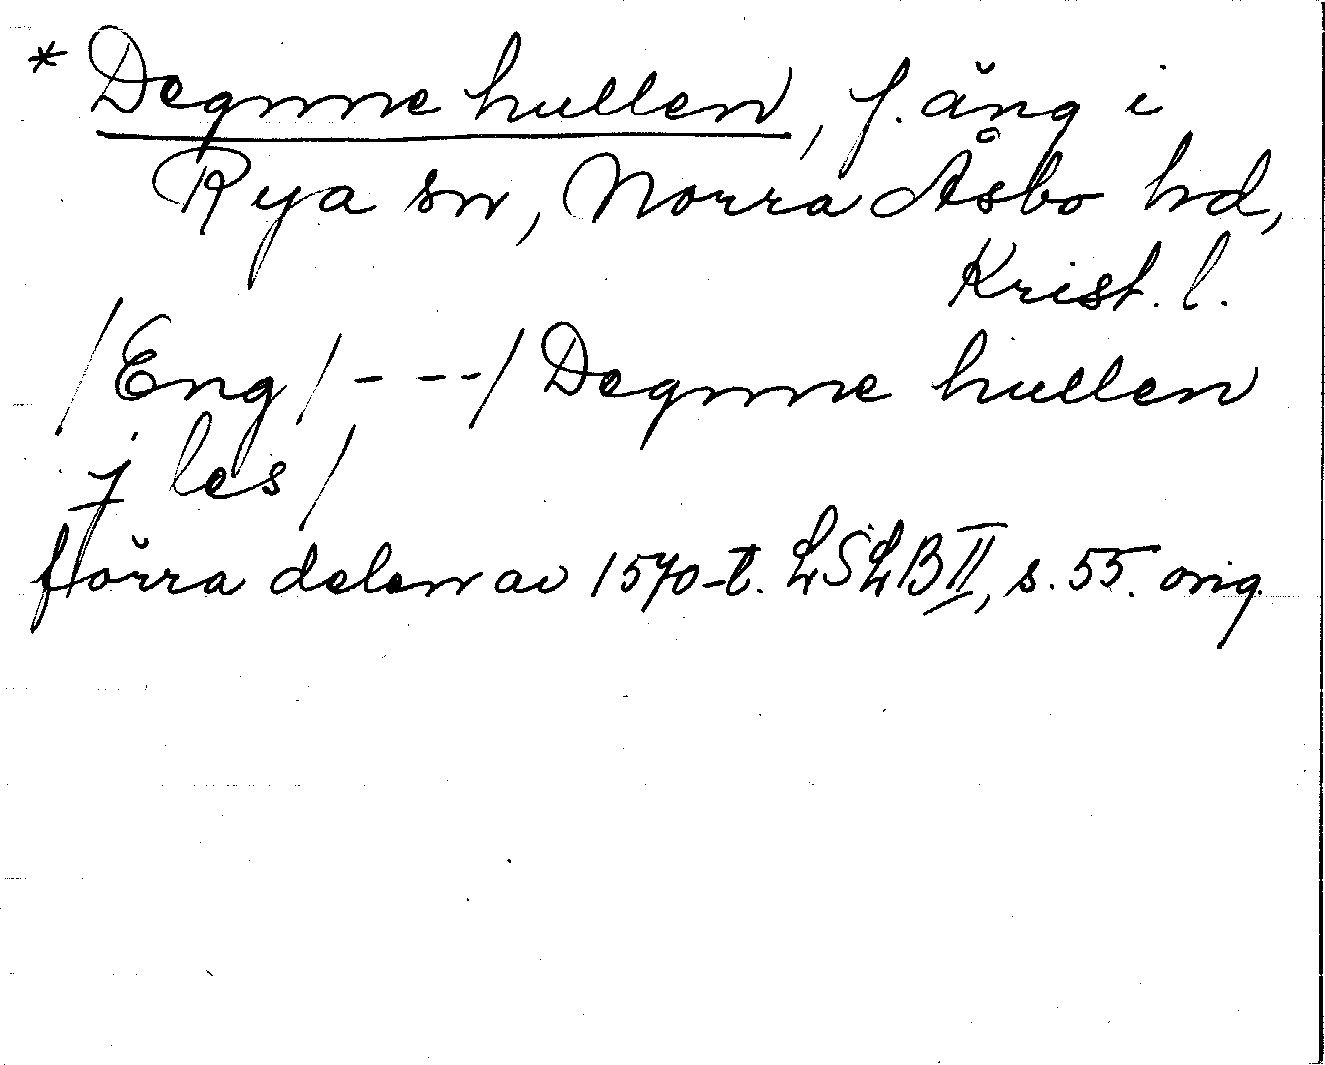 * Degnne hullen, f. äng i
Rya sn, Norra Åsbo hd,
Krist. l.
/Eng/---/Degnne hullen
j les/
förra delen av 1570-t. LSLB II, s. 55. orig.